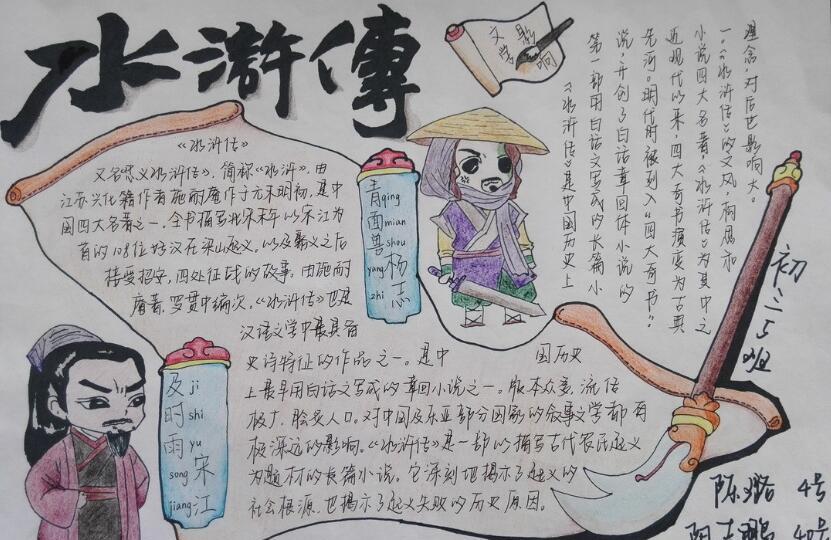 水滸傳
文学影响
《水浒传》
又名忠义水浒传》,简称《水浒》,由
江苏兴化籍作者施耐庵作于元末明初,是中
国四大名著之一,全书描写北宋末年以宋江为
首的108位好汉在梁山起义,以及聚义之后
接受招安,四处征战的故事。由施耐
庵著,罗贯中编次。《水浒传》也是
汉语文学中最具备
史诗特征的作品之一。是中国历史
上最早用白话文写成的章回小说之一。版本众多,流传
极广,脍炙人口。对中国及东亚部分国家的叙事文学都有
极深远的影响。《水浒传》是一部以描写古代农民起义
为题材的长篇小说。它深刻地揭示了起义的
社会根源,也揭示了起义失败的历史原因。
青面兽杨志
qing mian shou yang zhi
及时雨宋江
ji shi yu song jiang
《水浒传》是中国历史上
第一部用白话文写成的长篇小
说,开创了白话章回体小说的
先河。明代时被列入“四大奇书”;
近现代以来,四大奇书演变为古典
小说四大名著,《水浒传》为其中之
一。《水浒传》的文风、布局和
理念,对后世影响大。
初二5班
陈 4号
阳志鹏 40号